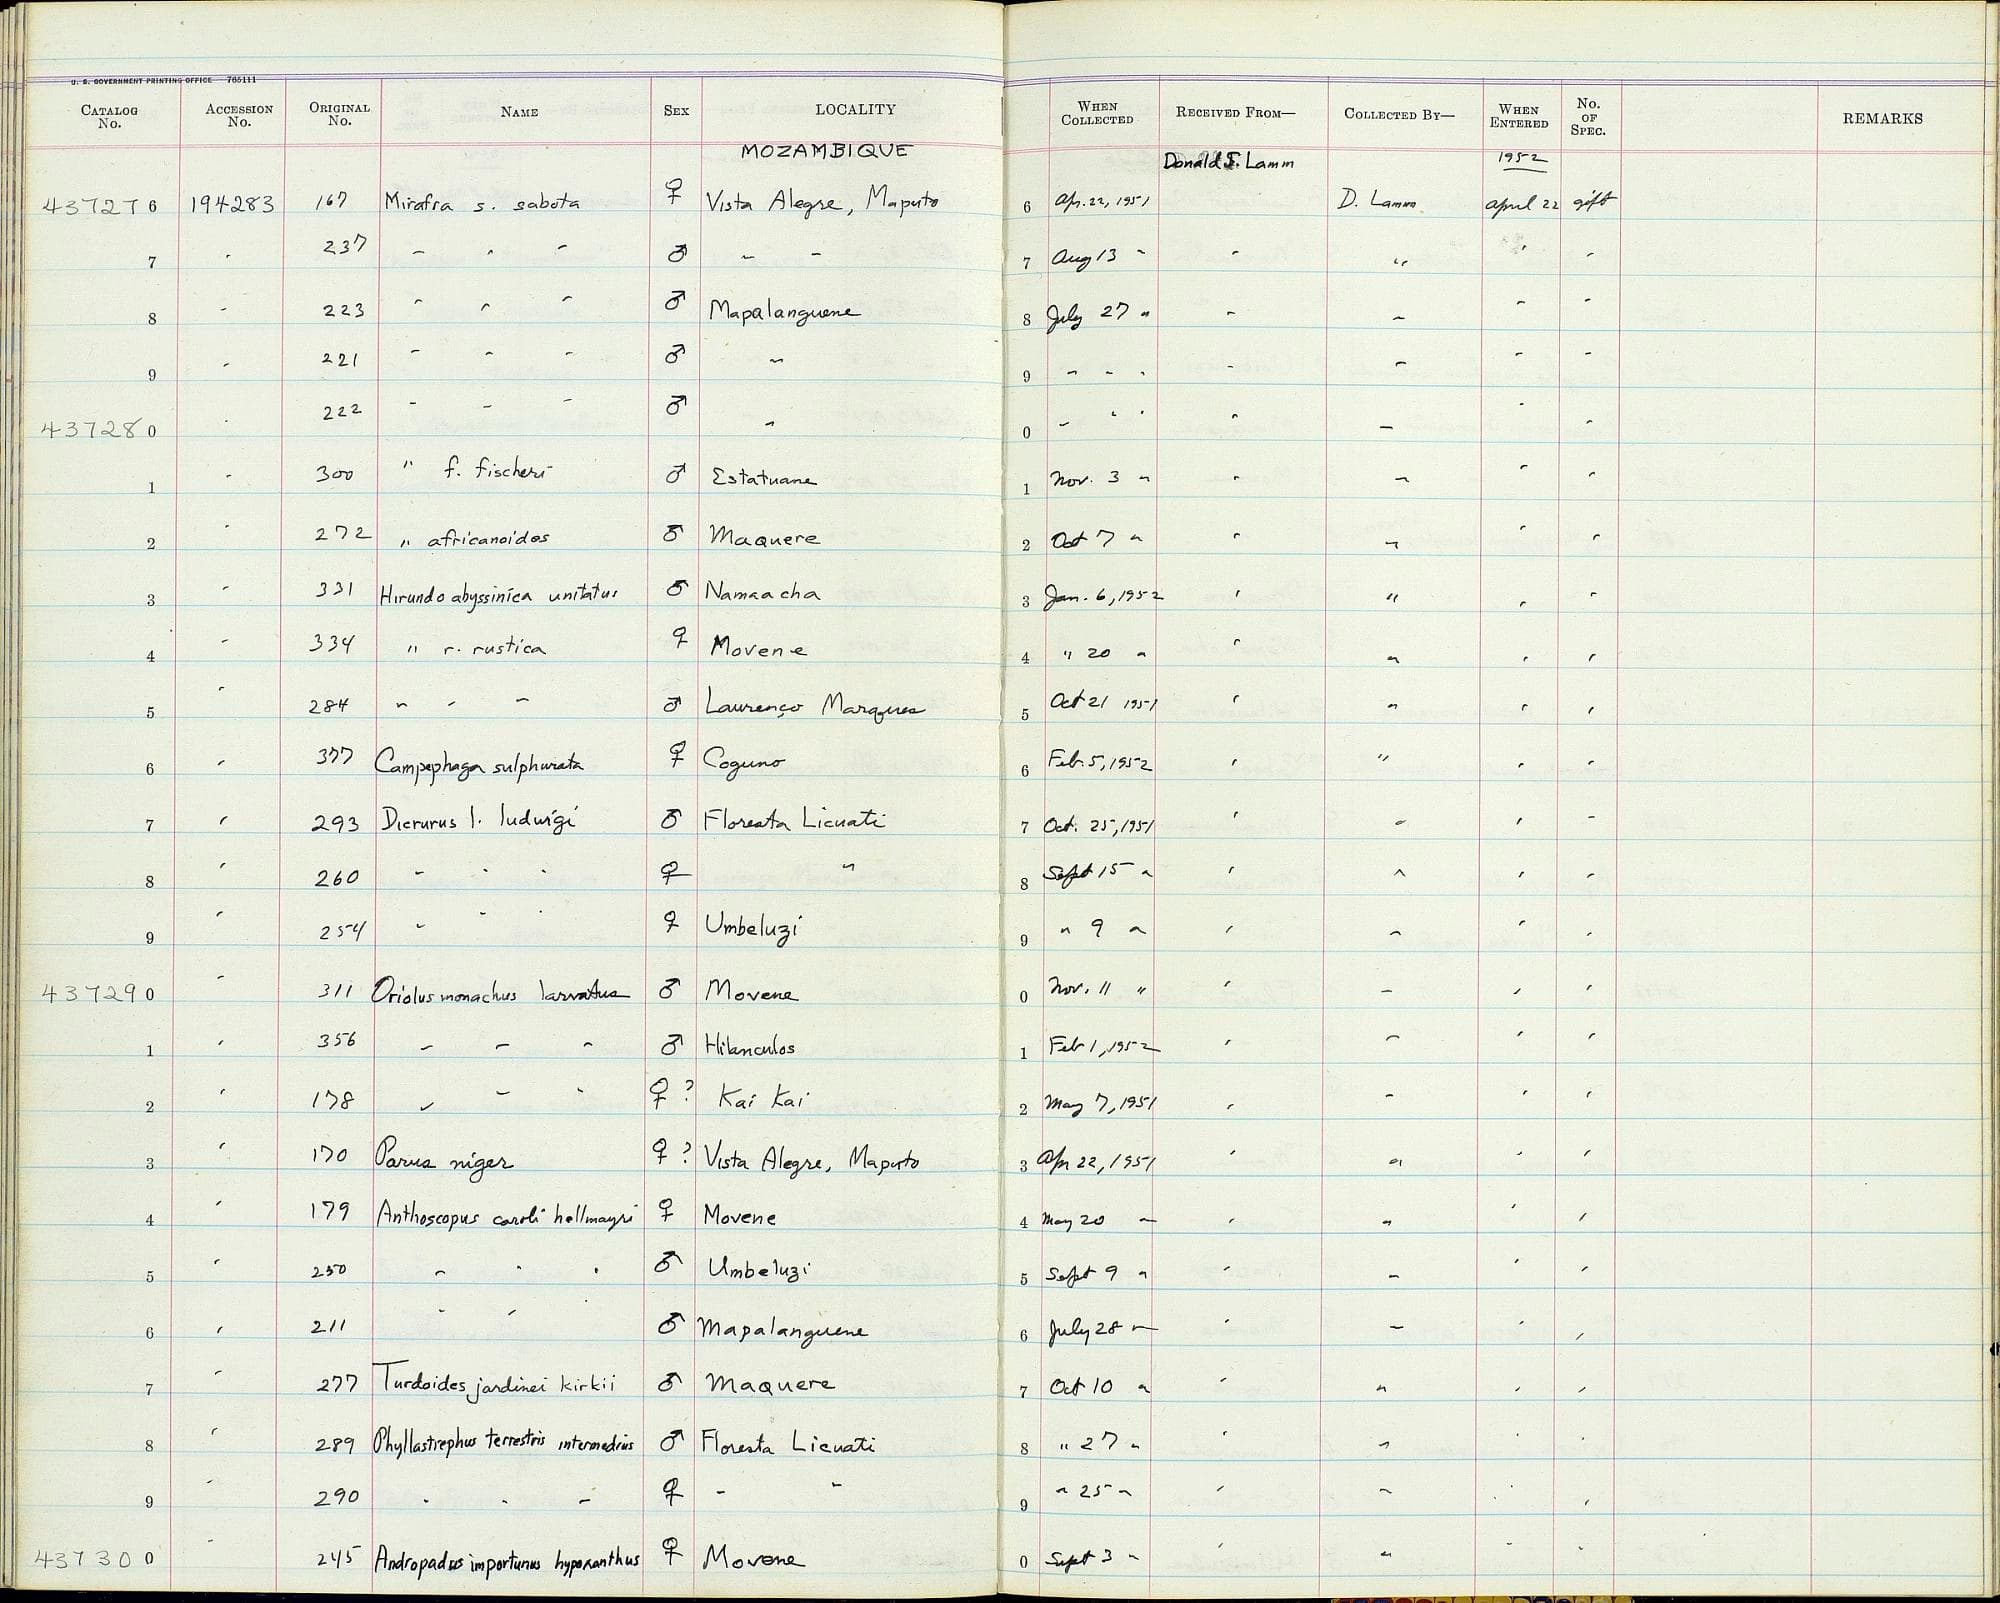 U. S. GOVERNMENT PRINTING OFFICE 765111
CATALOG No. ACCESSION No. ORIGINAL No. NAME SEX LOCALITY WHEN COLLECTED RECEIVED FROM— COLLECTED BY— WHEN ENTERED No. OF SPEC. REMARKS
MOZAMBIQUE Donald F. Lamm 1952
437276 194283 167 Mirafra s. sabota ♀ Vista Alegre, Maputo 6 Apr. 22, 1951 D. Lamm april 22 gift
7 " 237 " " " ♂ " " 7 Aug 13 " " " " "
8 " 223 " " " ♂ Mapalanguene 8 July 27 " " " " "
9 " 221 " " " ♂ " 9 " " " " " " "
437280 " 222 " " " ♂ " 0 " " " " " " "
1 " 300 " f. fischeri ♂ Estatuane 1 Nov. 3 " " " " "
2 " 272 " africanoides ♂ Maquere 2 Oct 7 " " " " "
3 " 331 Hirundo abyssinica unitatus ♂ Namaacha 3 Jan. 6, 1952 " " " "
4 " 334 " r. rustica ♀ Movene 4 " 20 " " " " "
5 " 284 " " " ♂ Laurenço Marques 5 Oct 21 1951 " " " "
6 " 377 Campephaga sulphurata ♀ Coguno 6 Feb. 5, 1952 " " " "
7 " 293 Dicrurus l. ludwigi ♂ Floresta Licuati 7 Oct. 25, 1951 " " " "
8 " 260 " " " ♀ " 8 Sept 15 " " " " "
9 " 254 " " " ♀ Umbeluzi 9 " 9 " " " " "
437290 " 311 Oriolus monachus larvatus ♂ Movene 0 Nov. 11 " " " " "
1 " 356 " " " ♂ Hilanculos 1 Feb 1, 1952 " " " "
2 " 178 " " " ♀ ? Kai Kai 2 May 7, 1951 " " " "
3 " 170 Parus niger ♀ ? Vista Alegre, Maputo 3 Apr 22, 1951 " " " "
4 " 179 Anthoscopus caroli hellmayri ♀ Movene 4 May 20 " " " " "
5 " 250 " " " ♂ Umbeluzi 5 Sept 9 " " " " "
6 " 211 " " " ♂ Mapalanguene 6 July 28 " " " " "
7 " 277 Turdoides jardinei kirkii ♂ Maquere 7 Oct 10 " " " " "
8 " 289 Phyllastrephus terrestris intermedius ♂ Floresta Licuati 8 " 27 " " " " "
9 " 290 " " " ♀ " " 9 " 25 " " " " "
437300 " 245 Andropadus importunus hypoxanthus ♀ Movene 0 Sept 3 " " " " "